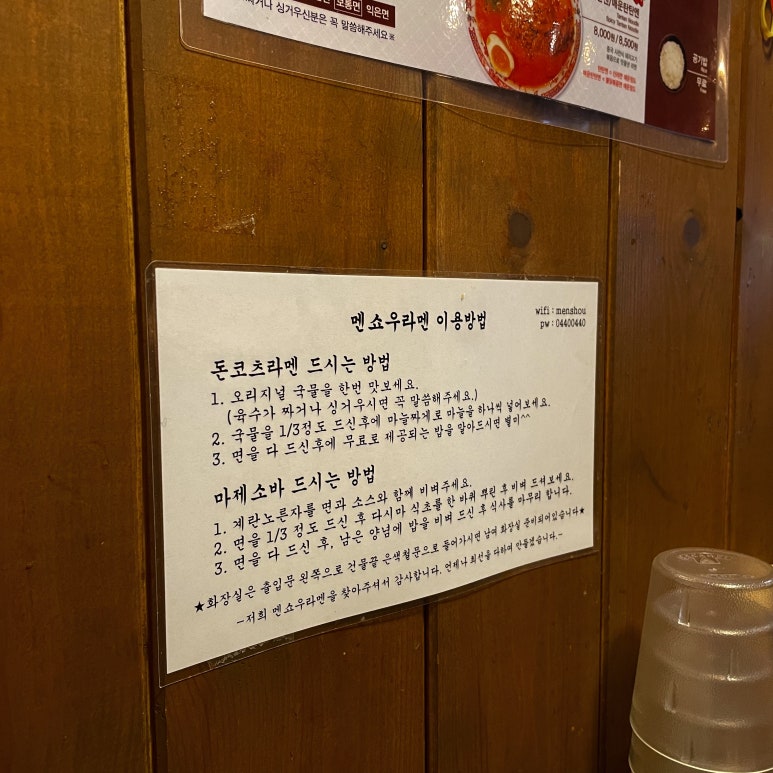 보통면 익은면
짜거나 싱거우신분은 꼭 말씀해주세요※
매운탄탄면
Spicy Tantan Noodle
8,000원/8,500원
공기밥
무료
wifi : menshou
pw : 04400440
멘쇼우라멘 이용방법
돈코츠라멘 드시는 방법
1. 오리지널 국물을 한번 맛보세요.
(육수가 짜거나 싱거우시면 꼭 말씀해주세요.)
2. 국물을 1/3정도 드신후에 마늘짜게로 마늘을 하나씩 넣어보세요.
3. 면을 다 드신후에 무료로 제공되는 밥을 말아드시면 별미^^
마제소바 드시는 방법
1. 계란노른자를 면과 소스와 함께 비벼주세요.
2. 면을 1/3 정도 드신 후 다시마 식초를 한 바퀴 뿌린 후 비벼 드셔보세요.
3. 면을 다 드신 후, 남은 양념에 밥을 비벼 드신 후 식사를 마무리 합니다.
★화장실은 출입문 왼쪽으로 건물끝 은색철문으로 들어가시면 남여 화장실 준비되어있습니다★
-저희 멘쇼우라멘을 찾아주셔서 감사합니다. 언제나 최선을 다하며 만들겠습니다.-